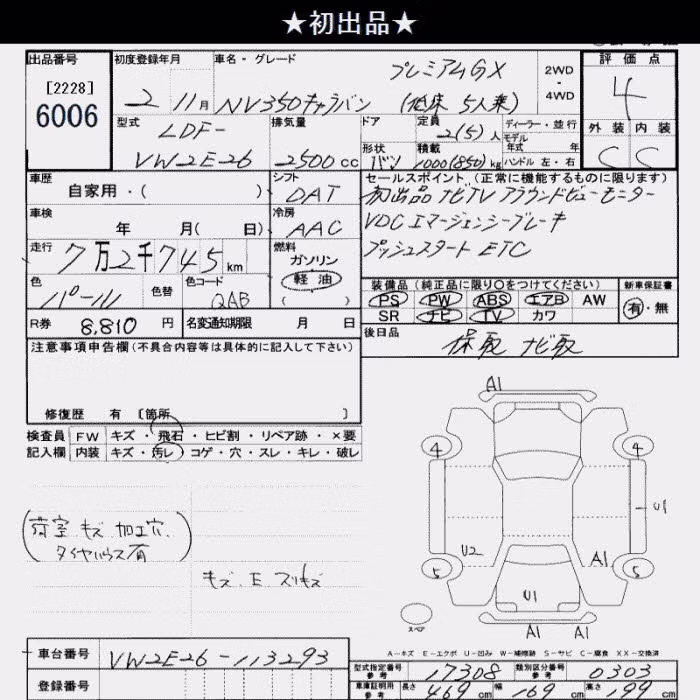 ★初出品★
出品番号
[2228]
6006
初度登録年月
2 11月
車名・グレード
プレミアムGX
NV350キャラバン (低床 5人乗)
2WD
4WD
評価点
4
外装 内装
C C
型式
LDF-
VW2E26
排気量
2500cc
ドア
形状
バン
定員
2(5)人
積載
1000(850)kg
ディーラー・並行
モデル
年式 年
ハンドル 左・右
車歴
自家用・( )
シフト
DAT
車検
年 月( 日)
冷房
AAC
走行
7万2千745km
燃料
ガソリン
軽油
( )
色
パール
色替
色コード
QAB
R券
8,810円
名変通知期限 月 日
セールスポイント(正常に機能するものに限ります)
初出品 ナビTV アラウンドビューモニター
VDC エマージェンシーブレーキ
プッシュスタート ETC
装備品(純正品に限り〇をつけてください)
PS PW ABS エアB AW
SR ナビ TV カワ
新車保証書
有・無
後日品
保取 ナビ取
注意事項申告欄(不具合内容等は具体的に記入して下さい)
修復歴 有 〔箇所 〕
検査員 FW キズ・飛石・ヒビ割・リペア跡・×要
記入欄 内装 キズ・汚レ・コゲ・穴・スレ・キレ・破レ
(荷室 キズ 加工穴、
タイヤハウス有)
キズ、E、スリキズ
A1
4 4
U1
U2
A1
5 5
U1
スペア
A1 A1
A-キズ E-エクボ U-凹み W-補修跡 S-サビ C-腐食 XX-交換済
車台番号
VW2E26-113293
登録番号
型式指定番号
参考
17308
類別区分番号
参考
0303
車庫証明用
参考
長さ 469cm 幅 169cm 高さ 199cm